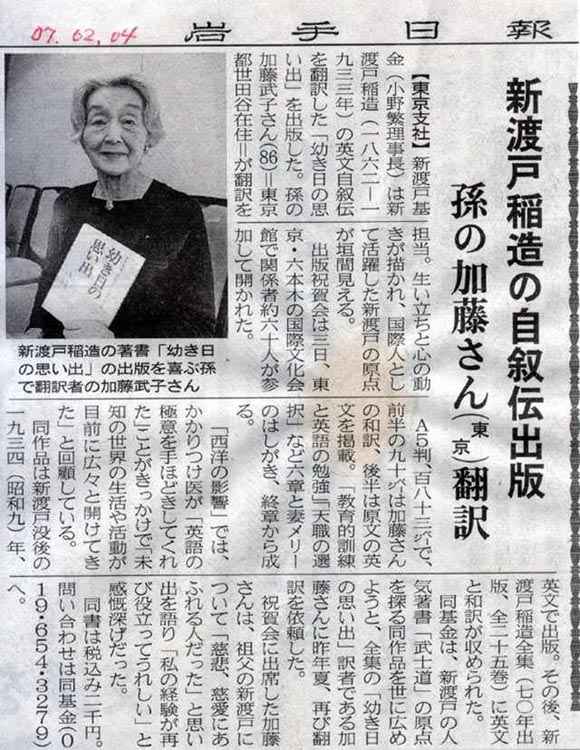 07.02.04
岩手日報
新渡戸稲造の自叙伝出版
孫の加藤さん(東京)翻訳
【東京支社】新渡戸基
金(小野繁理事長)は新
渡戸稲造(一八六二―一
九三三年)の英文自叙伝
を翻訳した「幼き日の思
い出」を出版した。孫の
加藤武子さん(86)=東京
都世田谷在住=が翻訳を
担当。生い立ちと心の動
きが描かれ、国際人とし
て活躍した新渡戸の原点
が垣間見える。
出版祝賀会は三日、東
京・六本木の国際文化会
館で関係者約六十人が参
加して開かれた。
幼き日の
思い出
新渡戸稲造の著書「幼き日
の思い出」の出版を喜ぶ孫
で翻訳者の加藤武子さん
A5判、百八十三㌻で、
前半の九十㌻は加藤さん
の和訳、後半は原文の英
文を掲載。「教育的訓練
と英語の勉強」「天職の選
択」など六章と妻メリー
のはしがき、終章から成
る。
「西洋の影響」では、
かかりつけ医が「英語の
極意を手ほどきしてくれ
た」ことがきっかけで「未
知の世界の生活や活動が
目前に広々と開けてき
た」と回顧している。
同作品は新渡戸没後の
一九三四(昭和九)年、
英文で出版。その後、新
渡戸稲造全集(七〇年出
版、全二十五巻)に英文
と和訳が収められた。
同基金は、新渡戸の人
気著書「武士道」の原点
を探る同作品を世に広め
ようと、全集の「幼き日
の思い出」訳者である加
藤さんに昨年夏、再び翻
訳を依頼した。
祝賀会に出席した加藤
さんは、祖父の新渡戸に
ついて「慈悲、慈愛にあ
ふれる人だった」と思い
出を語り「私の経験が再
び役立ってうれしい」と
感慨深げだった。
同書は税込み二千円。
問い合わせは同基金(0
19・654・3279)
へ。